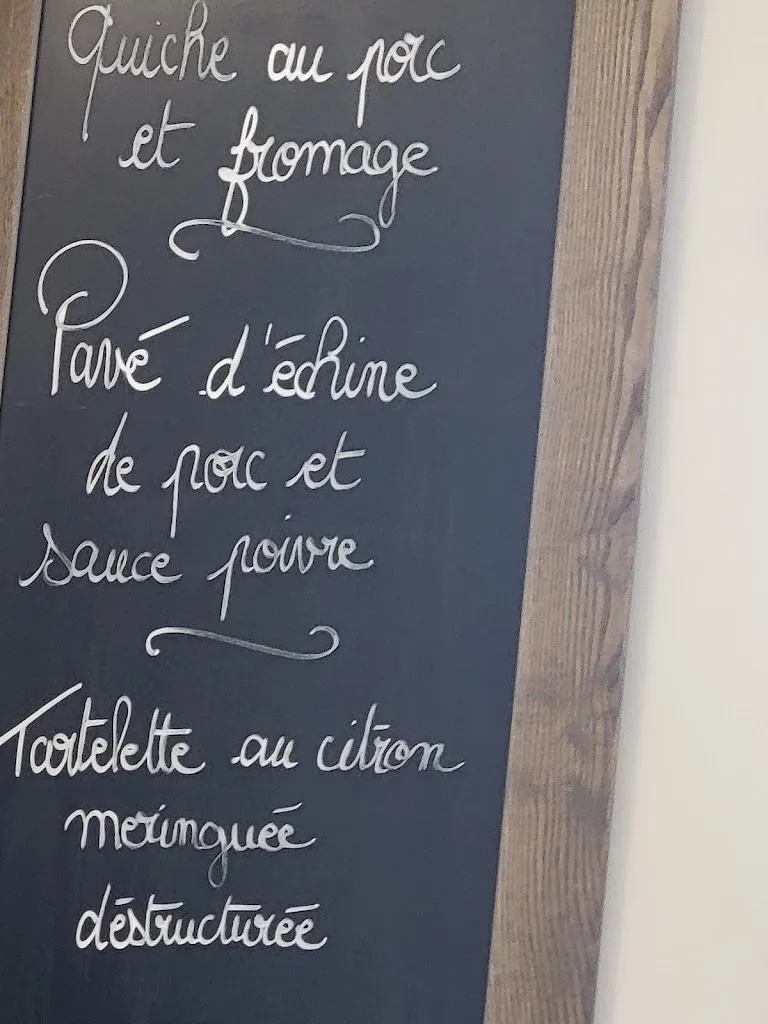 Quiche au porc
et fromage
Pavé d'échine
de porc et
sauce poivre
Tartelette au citron
meringuée
déstructurée